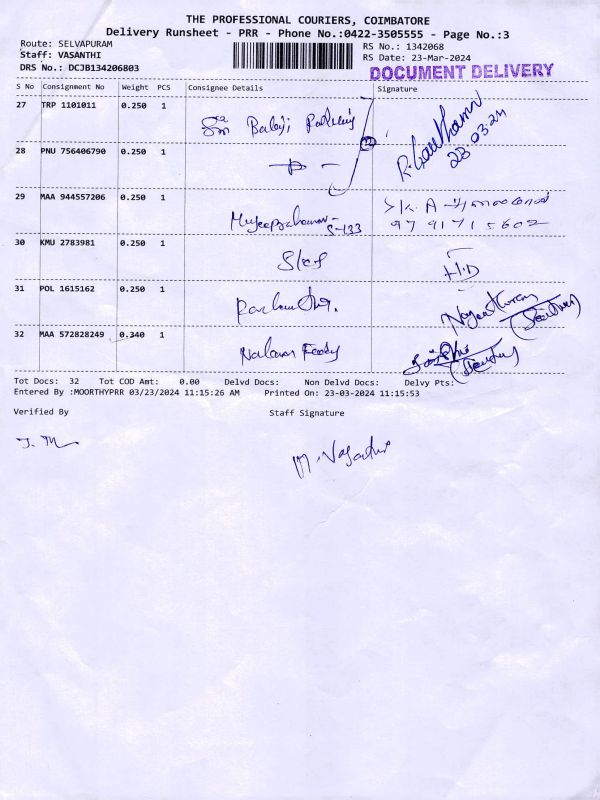 THE PROFESSIONAL COURIERS, COIMBATORE
Delivery Runsheet - PRR - Phone No.:0422-3505555 - Page No.:3
Route: SELVAPURAM
Staff: VASANTHI
DRS No.: DCJB134206803
RS No.: 1342068
RS Date: 23-Mar-2024
DOCUMENT DELIVERY
S No Consignment No Weight PCS Consignee Details Signature
27 TRP 1101011 0.250 1
Sri Balaji
R. Gowtham
23.03.24
28 PNU 756406790 0.250 1
29 MAA 944557206 0.250 1
S-133
S/K. A
9791715602
30 KMU 2783981 0.250 1
H.D
31 POL 1615162 0.250 1
32 MAA 572828249 0.340 1
Tot Docs: 32 Tot COD Amt: 0.00 Delvd Docs: Non Delvd Docs: Delvy Pts:
Entered By :MOORTHYPRR 03/23/2024 11:15:26 AM Printed On: 23-03-2024 11:15:53
Verified By Staff Signature